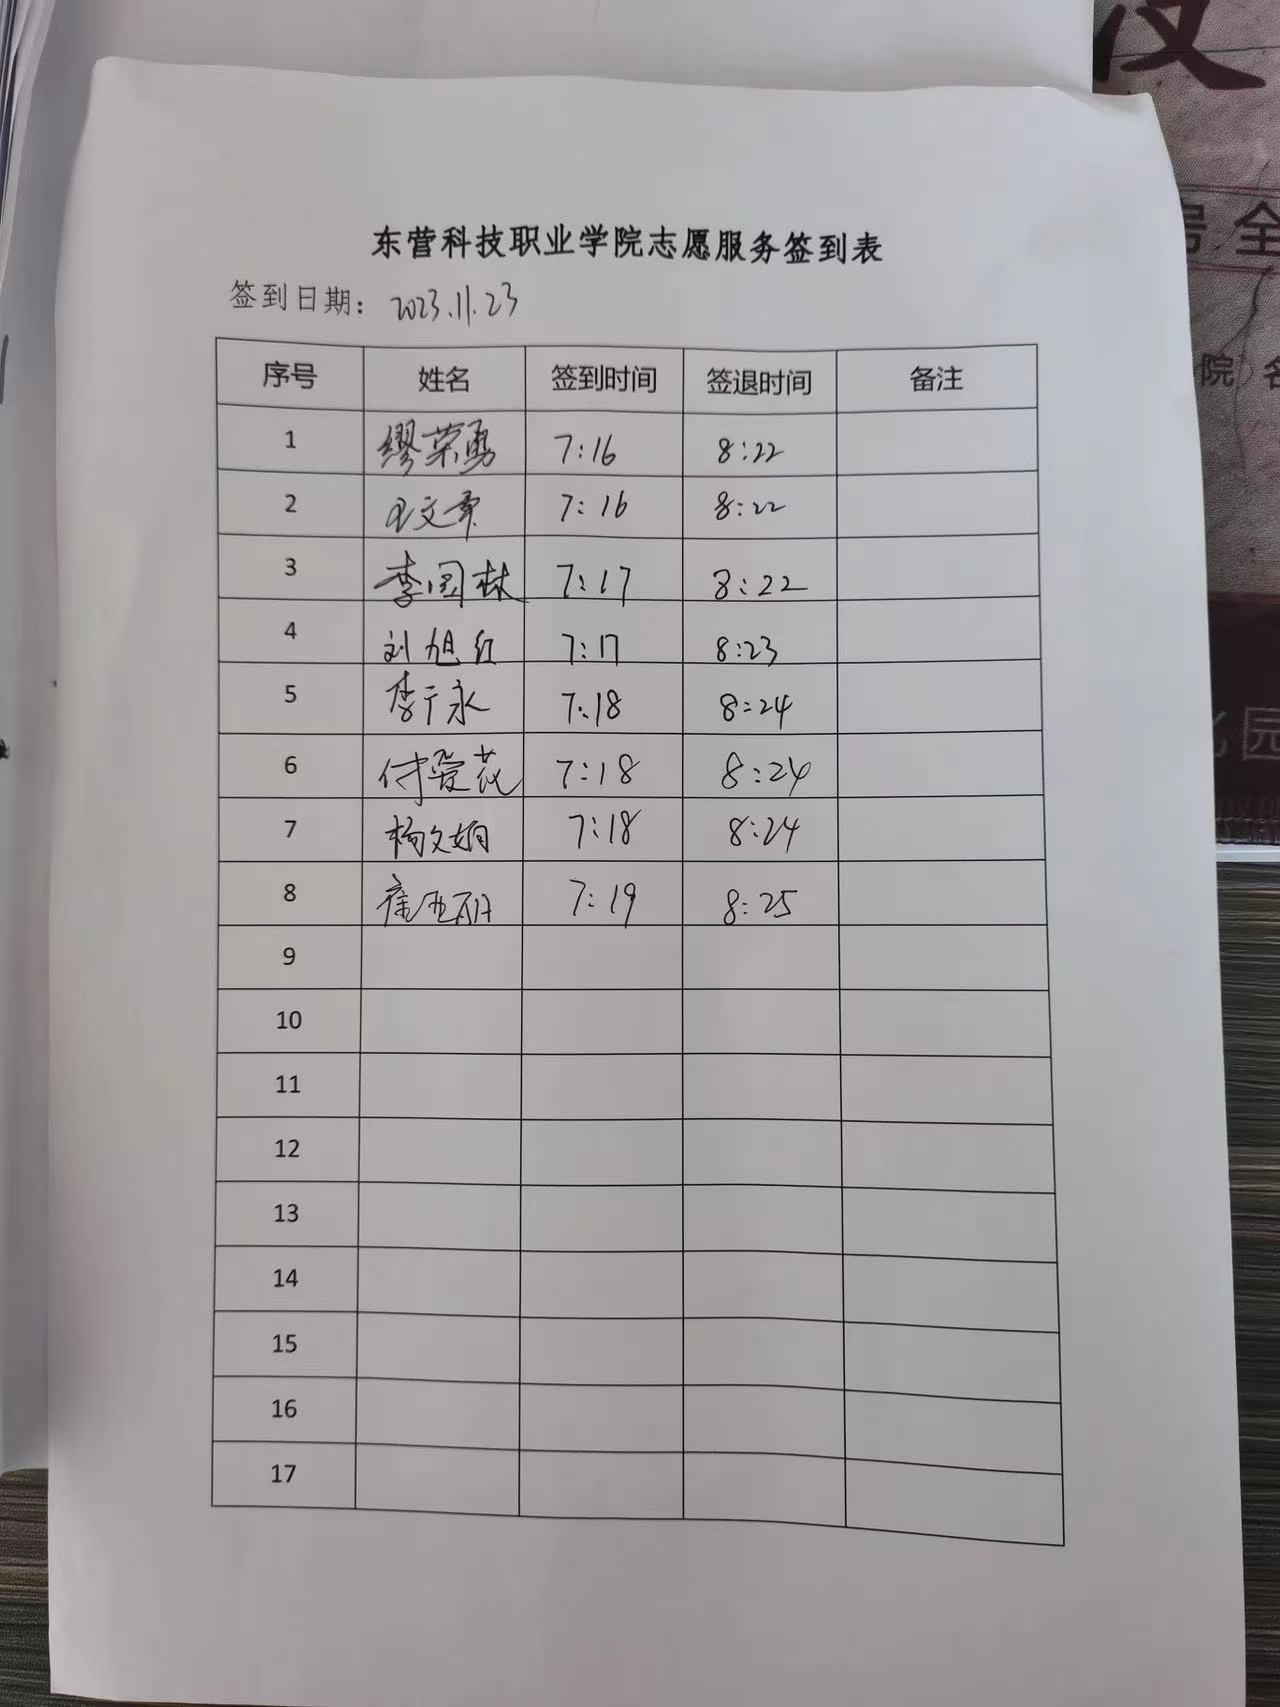 东营科技职业学院志愿服务签到表
签到日期: 2023.11.23
序号 姓名 签到时间 签退时间 备注
1 缪荣勇 7:16 8:22
2 王文章 7:16 8:22
3 李国林 7:17 8:22
4 刘旭红 7:17 8:23
5 李于永 7:18 8:24
6 付爱花 7:18 8:24
7 杨文娟 7:18 8:24
8 崔亚丽 7:19 8:25
9
10
11
12
13
14
15
16
17
汉
号全
院 名
化园